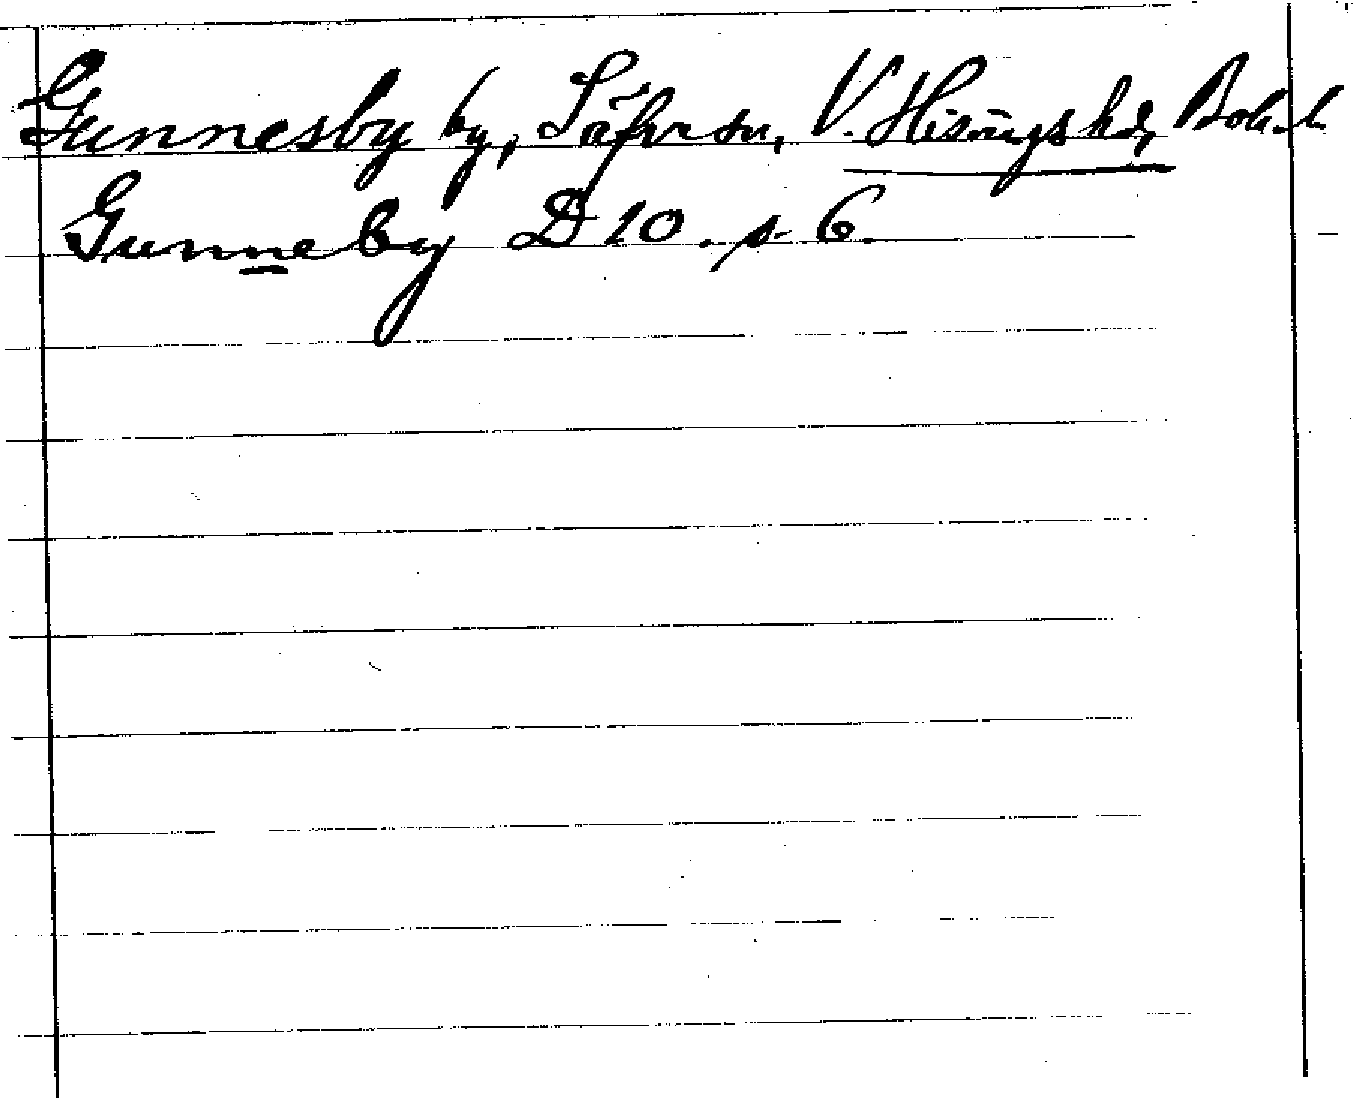 Gunnesby by, Säfve sn, V. Hisings hd, Boh. l.
Gunneby D 10. s. 6.